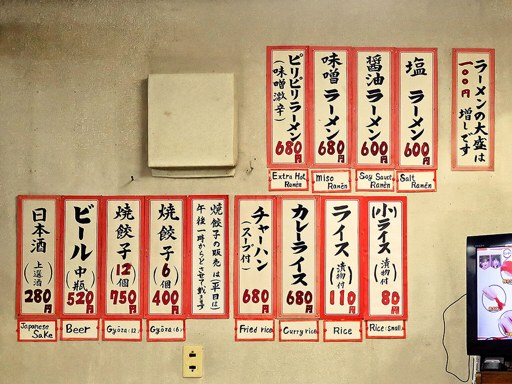 ラーメンの大盛は
一〇〇円増しです
塩ラーメン
600円
Salt
Ramén
醤油ラーメン
600円
Soy Sauce
Ramén
味噌ラーメン
680円
Miso
Ramén
ピリピリラーメン
(味噌激辛)
680円
Extra Hot
Ramén
(小)ライス
(漬物付)
80円
Rice(small)
ライス
(漬物付)
110円
Rice
カレーライス
680円
Curry rice
チャーハン
(スープ付)
680円
Fried rice
焼餃子の販売は(平日は)
午後一時からとさせて戴きます
焼餃子
(6個)
400円
Gyōza(6)
焼餃子
12個
750円
Gyōza(12)
ビール
(中瓶)
520円
Beer
日本酒
(上選酒)
280円
Japanese
Sake